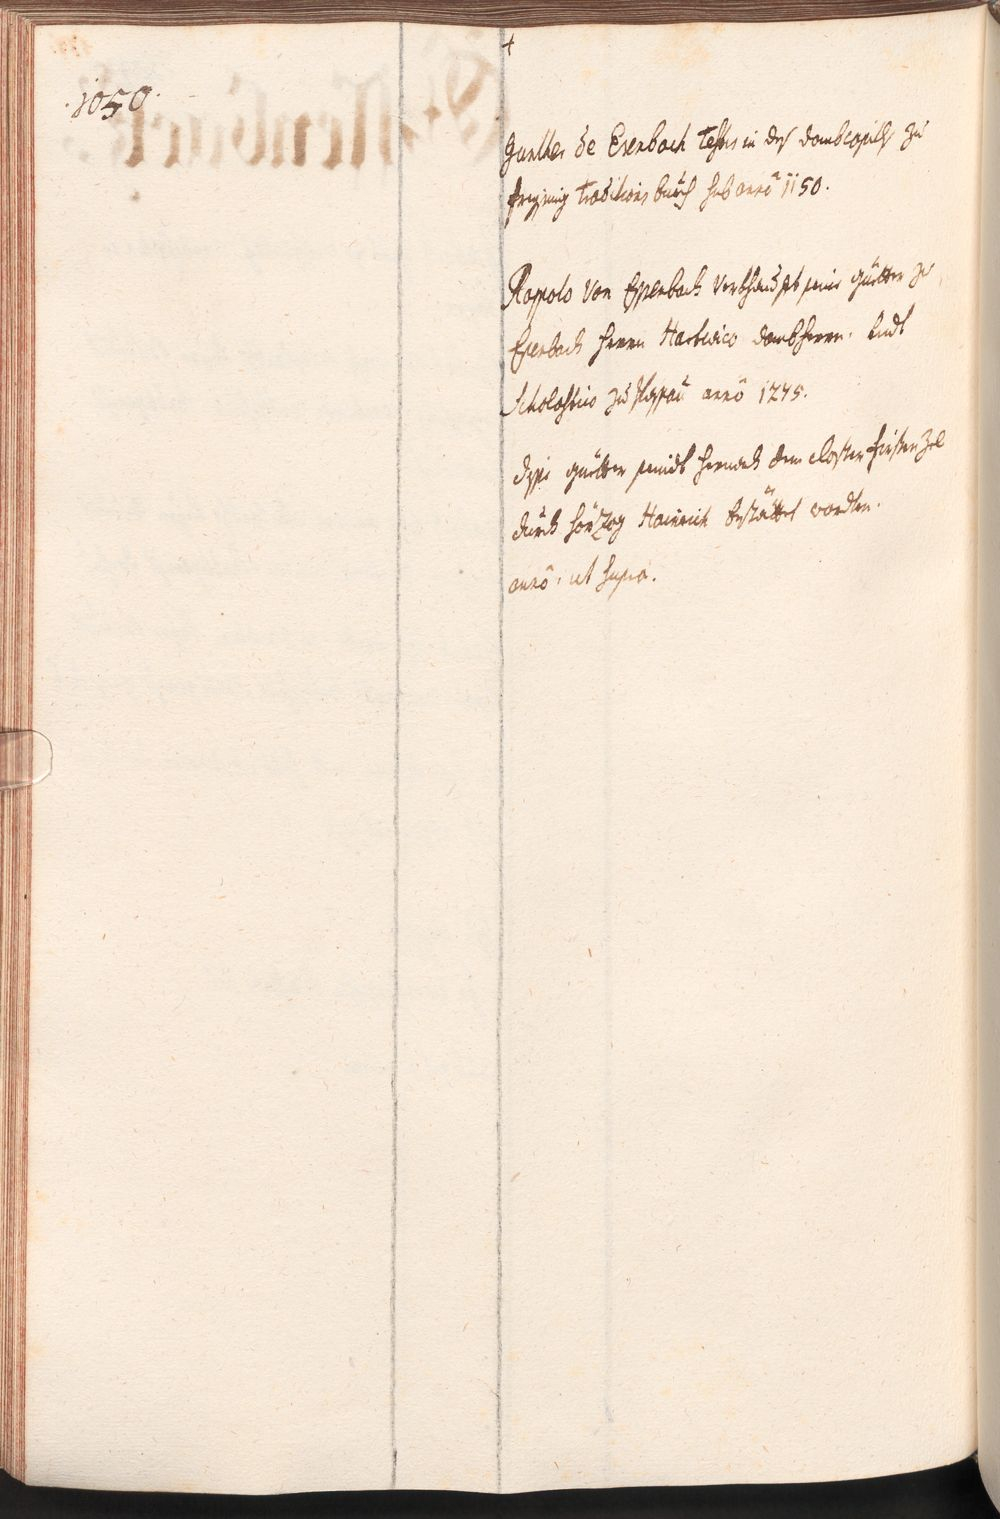 .1050.
+
Gunther de Esenbach testis in des dombcapitls zu
Freysing Traditionsbuech sub anno 1150.
Rapoto von Essenbach verkhaufft seine güetter zu
Esenbach Herrn Hartwico dombherrn. undt
Scholastico zu Passau anno 1275.
dise güetter seindt hernach dem closter Fürstenzel
durch Hörzog Hainrich bestättet worden.
anno. ut supra.